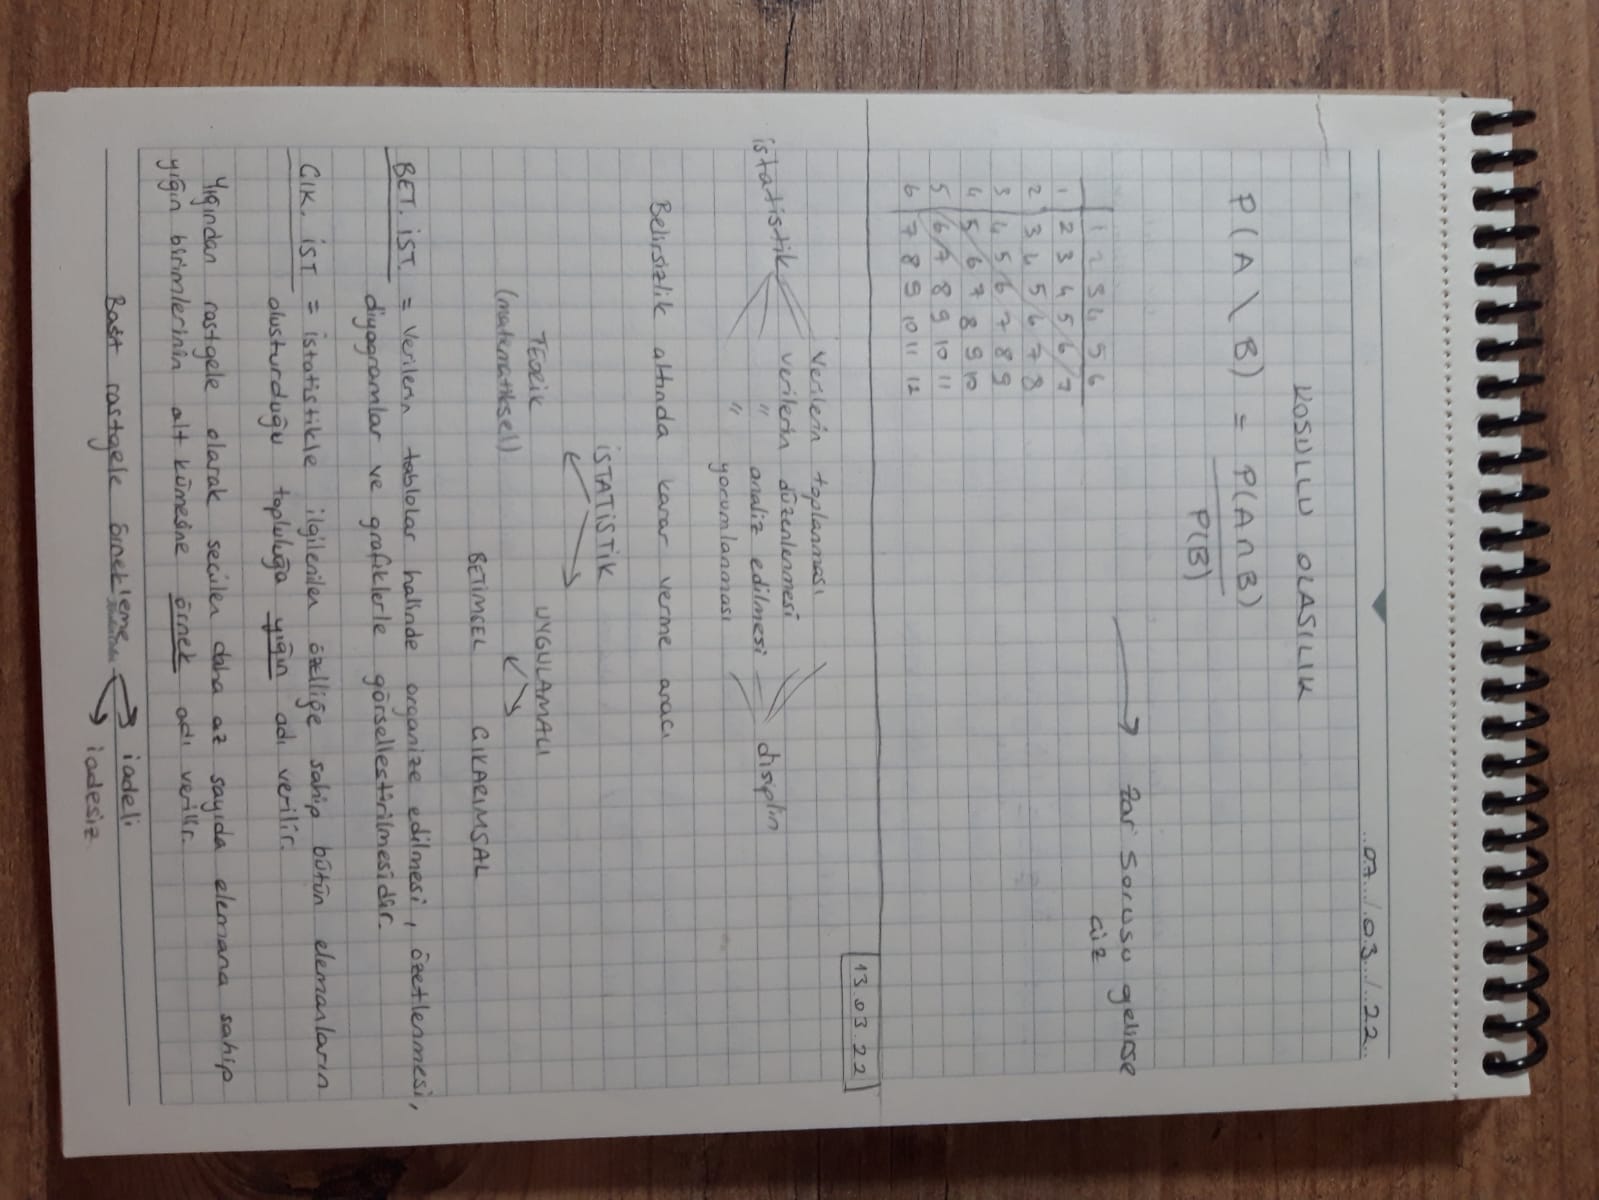 07 / 03 / 22
KOSULLU OLASILIK
P(A \ B) = P(A∩B)
P(B)
→ Zar Sorusu gelirse
ciz
1 2 3 4 5 6
1 2 3 4 5 6 7
2 3 4 5 6 7 8
3 4 5 6 7 8 9
4 5 6 7 8 9 10
5 6 7 8 9 10 11
6 7 8 9 10 11 12
13.03.22
Verilerin toplanması
istatistik verilerin düzenlenmesi
" analiz edilmesi disiplin
" yorumlanması
Belirsizlik altında karar verme aracı
İSTATİSTİK
TEORİK UYGULAMALI
(matematiksel)
BETİMSEL CIKARIMSAL
BET. İST. = Verilerin tablolar halinde organize edilmesi, özetlenmesi,
diyagramlar ve grafiklerle görsellestirilmesidir.
CIK. İST = istatistikle ilgilenilen özelliğe sahip bütün elemanların
olusturduğu topluluğa yığın adı verilir.
Yığından rastgele olarak secilen daha az sayıda elemana sahip
yığın birimlerinin alt kümesine örnek adı verilir.
Basit rastgele örnekleme → iadeli
→ iadesiz